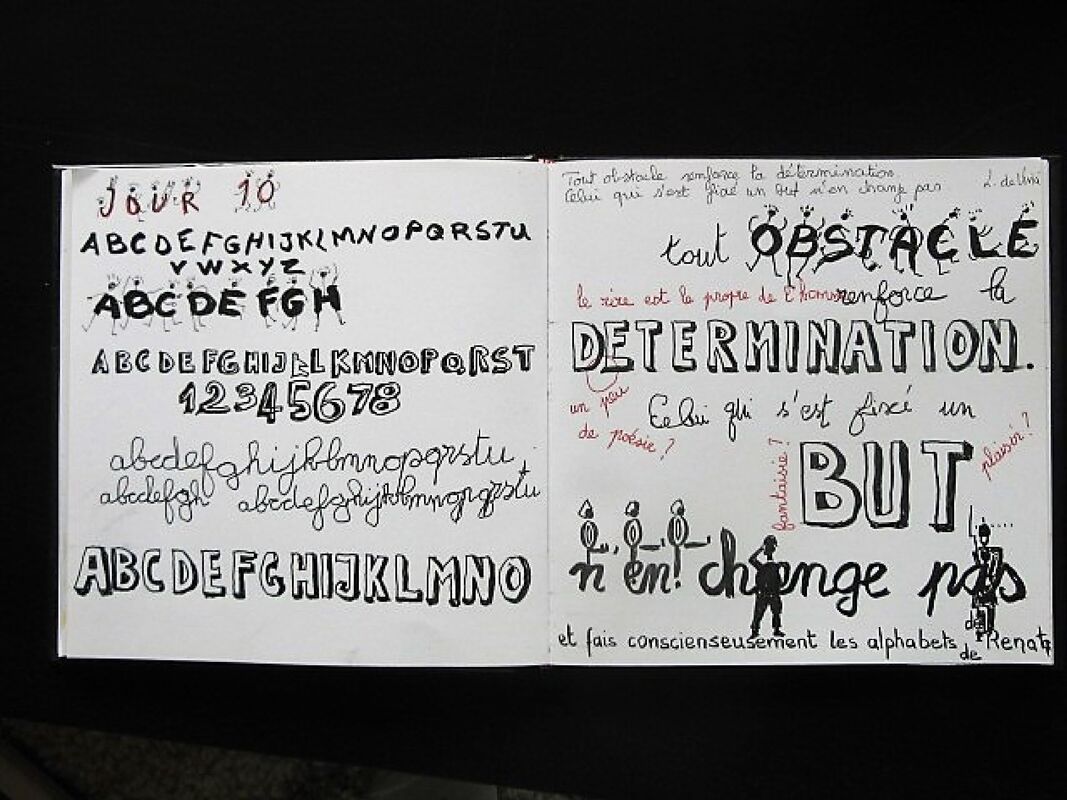 JOUR 10
ABCDEFGHIJKLMNOPQRSTU
VWXYZ
ABCDEFGH
ABCDEFGHIJLKMNOPQRST
12345678
abcdefghijklmnopqrstu
abcdefgh abcdefghijklmnopqrstu
ABCDEFGHIJKLMNO
Tout obstacle renforce la détermination.
Celui qui s'est fixé un but n'en change pas L. de Vinci
tout OBSTACLE
le rire est le propre de l'homme
renforce la
DETERMINATION.
un peu
de poésie ?
Celui qui s'est fixé un
fantaisie ?
BUT
plaisir ?
n'en! change pas
et fais conscienseusement les alphabets de Renata